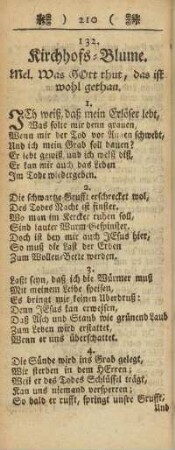 ) 210 (
132.
Kirchhofs-Blume.
Mel. Was GOtt thut, das ist
wohl gethan.
1.
ICh weiß, daß mein Erlöser lebt,
Was solte mir denn grauen,
Wenn mir der Tod vor Augen schwebt,
Und ich mein Grab soll bauen?
Er lebt gewiß, und ich weiß diß,
Er kan mir auch das Leben
Im Tode wiedergeben.
2.
Die schwartze Grufft erschrecket wol,
Des Todes Nacht ist finster.
Wo man im Kercker ruhen soll,
Sind lauter Wurm-Gespinster,
Doch ist bey mir auch JEsus hier,
So muß die Last der Erden
Zum Wollen-Bette werden.
3.
Last seyn, daß ich die Würmer muß
Mit meinem Leibe speisen,
Es bringt mir keinen Uberdruß:
Denn JEsus kan erweisen,
Daß Asch und Staub wie grünend Laub
Zum Leben wird erstattet,
Wenn er uns überschattet.
4.
Die Sünde wird ins Grab gelegt,
Wir sterben in dem HErren;
Weil er des Todes Schlüssel trägt,
Kan uns niemand versperren;
So bald er rufft, springt unsre Grufft,
Und